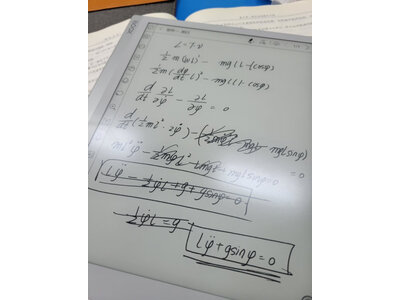 L=T-V
½m(φ̇l)² - mgl(1-cosφ)
½m(dφ/dt l)² - mgl(1-cosφ)
d/dt ∂L/∂φ̇ - ∂L/∂φ = 0
d/dt(½ml²·2φ̇)-( mglsinφ) = 0
ml²φ̈ + mglsinφ=0
lφ̈ - ½φ̇l+g+gsinφ=0
½φ̇l=g
lφ̈+gsinφ=0